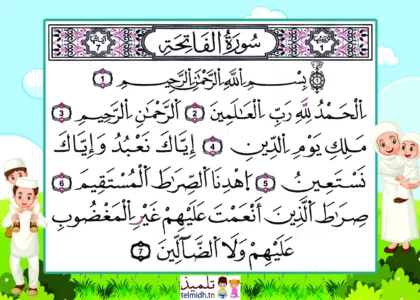 سُورَةُ الْفَاتِحَةِ
بِسْمِ اللَّهِ الرَّحْمَٰنِ الرَّحِيمِ 1
الْحَمْدُ لِلَّهِ رَبِّ الْعَالَمِينَ 2 الرَّحْمَٰنِ الرَّحِيمِ 3
مَلِكِ يَوْمِ الدِّينِ 4 إِيَّاكَ نَعْبُدُ وَإِيَّاكَ
نَسْتَعِينُ 5 اِهْدِنَا الصِّرَاطَ الْمُسْتَقِيمَ 6
صِرَاطَ الَّذِينَ أَنْعَمْتَ عَلَيْهِمْ غَيْرِ الْمَغْضُوبِ
عَلَيْهِمْ وَلَا الضَّالِّينَ 7
تلميذ
telmidh.tn